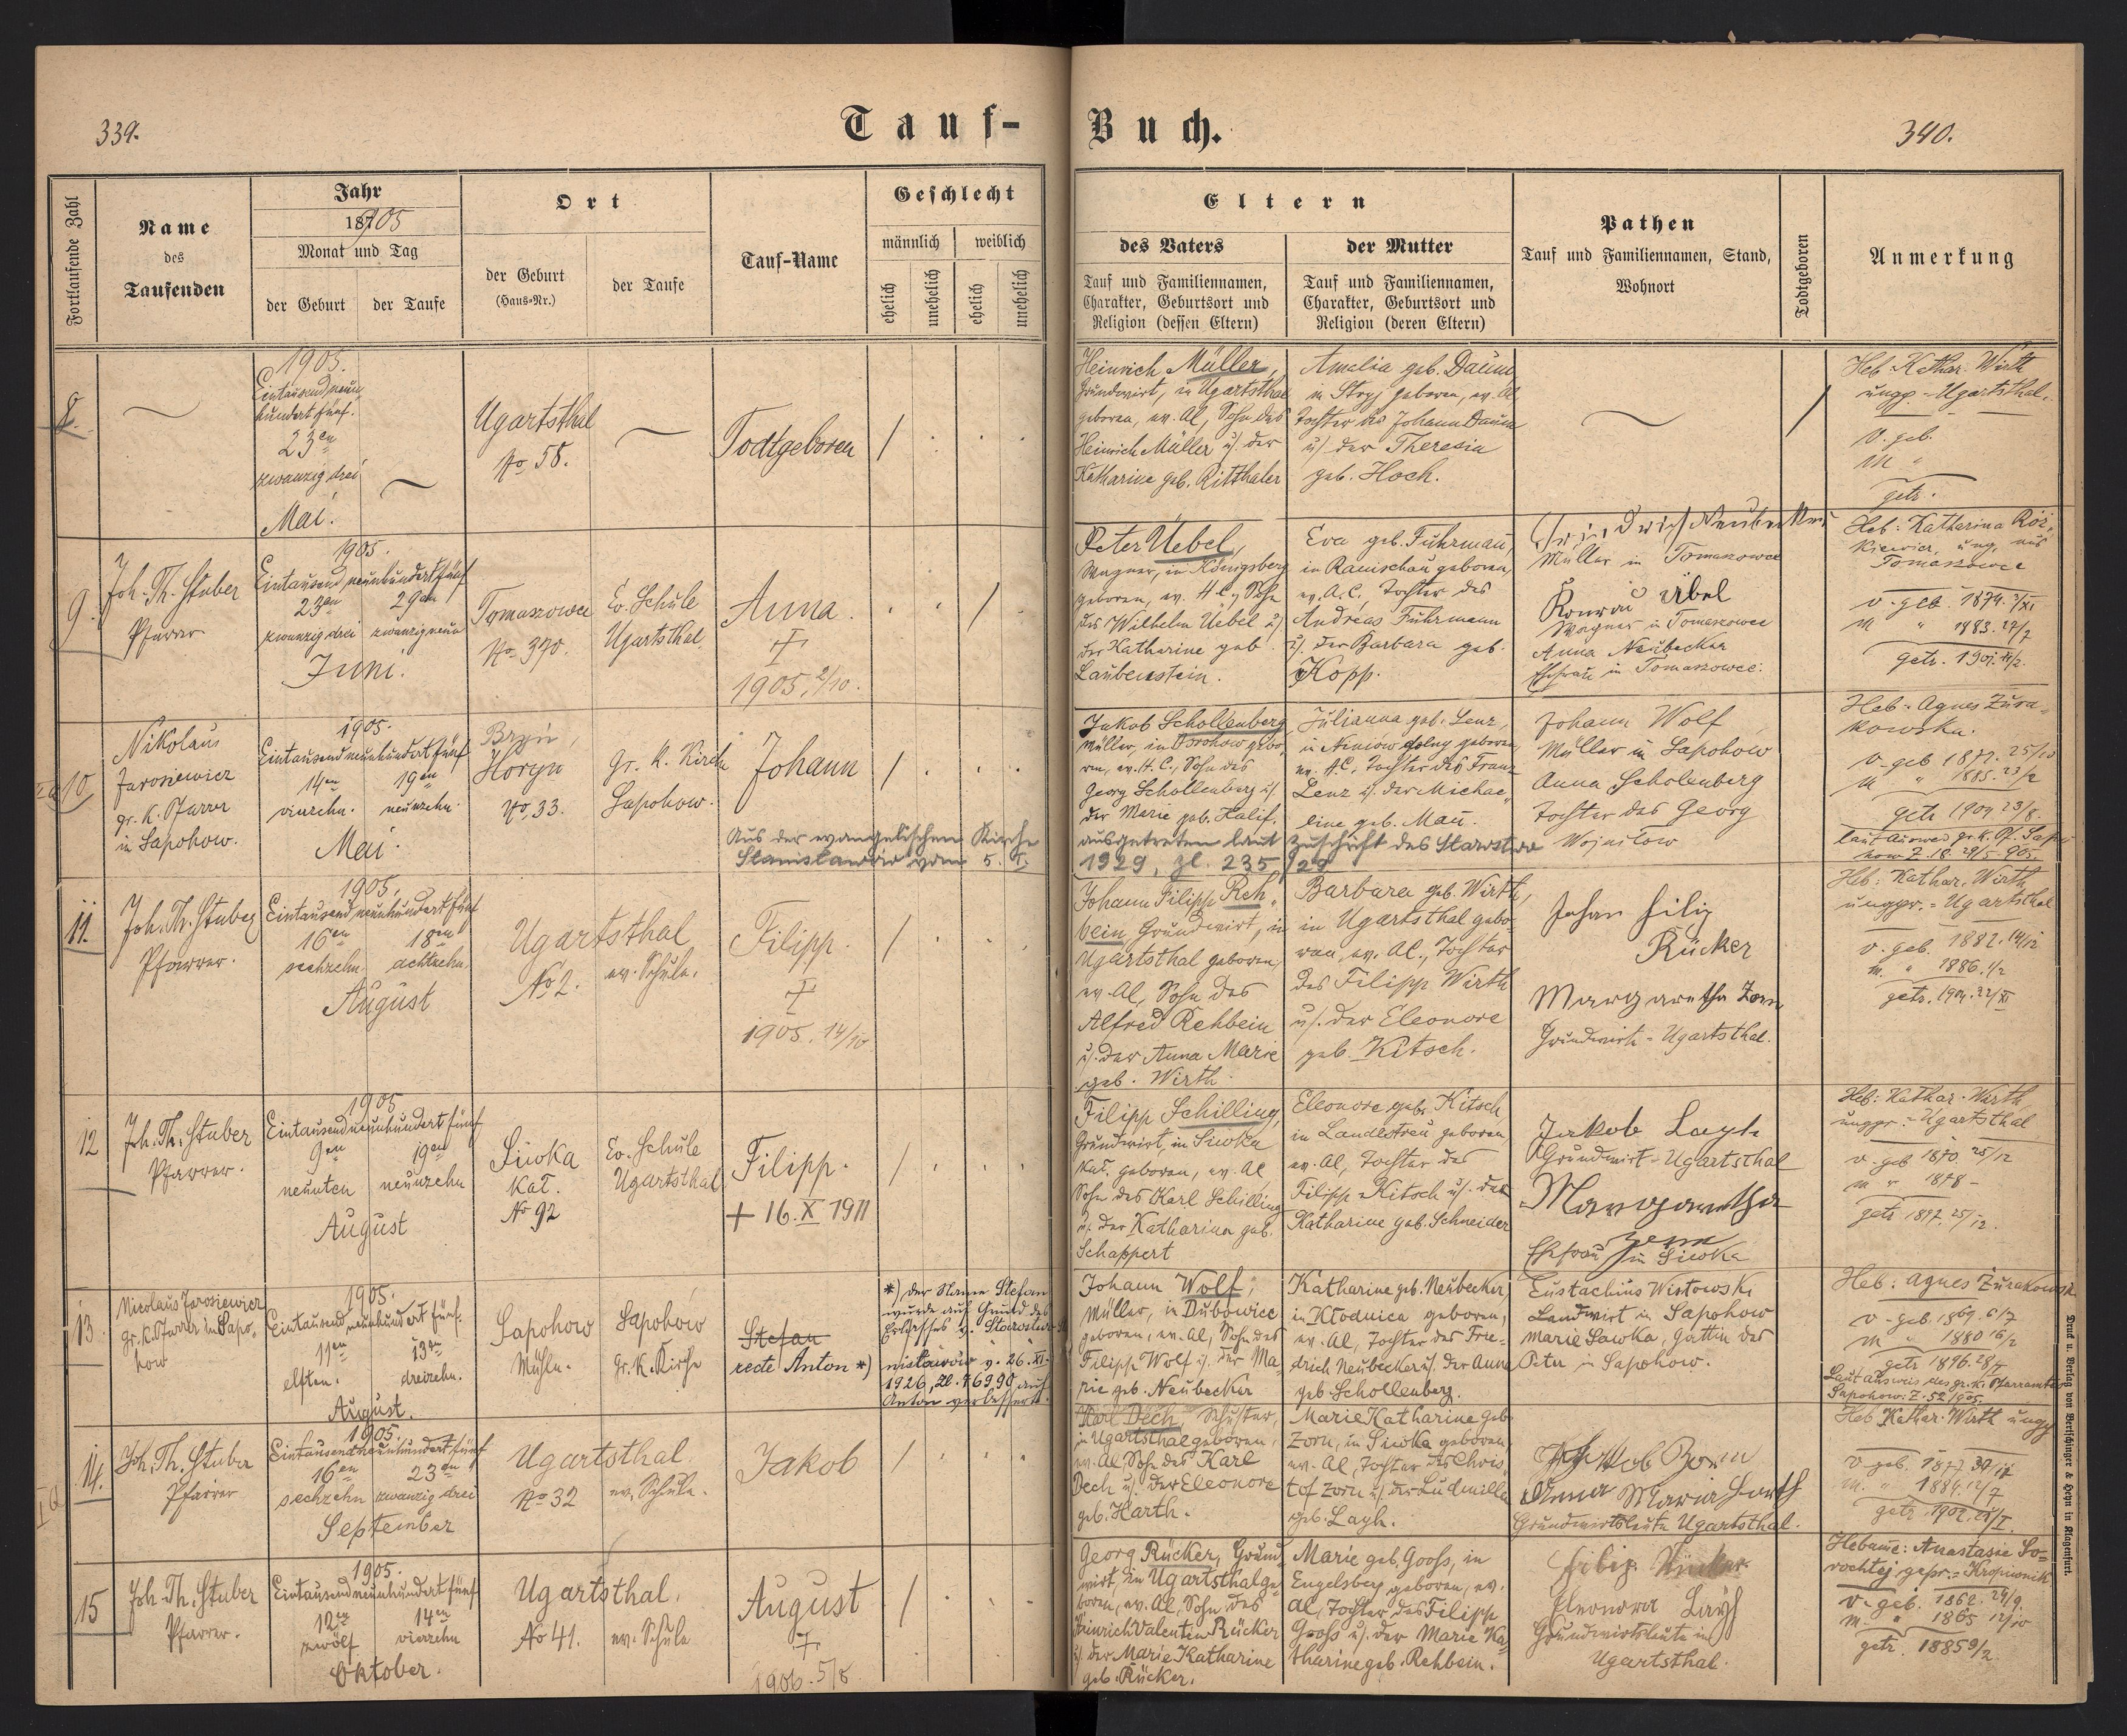 339.
Tauf-
Buch.
340.
Fortlaufende Zahl
Name
des
Taufenden
Jahr
1905
Monat und Tag
der Geburt
der Taufe
Ort
der Geburt
(Haus-Nr.)
der Taufe
Tauf-Name
Geschlecht
männlich
weiblich
ehelich
unehelich
ehelich
unehelich
Eltern
des Vaters
Tauf und Familiennamen,
Charakter, Geburtsort und
Religion (dessen Eltern)
der Mutter
Tauf und Familiennamen,
Charakter, Geburtsort und
Religion (deren Eltern)
Pathen
Tauf und Familiennamen, Stand,
Wohnort
Todtgeboren
Anmerkung
8
1905.
Eintausendneun
hundert fünf.
23en
zwanzig drei
Mai.
Ugartsthal
No 58.
Todtgeboren
/
Heinrich Müller,
Grundwirt, in Ugartsthal
geboren, ev. Al, Sohn des
Heinrich Müller u. der
Katharine geb. Ritthaler
Amalia geb. Daum
in Stryj geboren, ev. Al
Tochter des Johann Daum
u. der Theresia
geb. Hoch.
/
Heb. Kathar. Wirth
ungp. - Ugartsthal.
V. geb.
M "
getr.
9.
Joh. Th. Stuber
Pfarrer
1905.
Eintausend neunhundert fünf
23en 29en
zwanzig drei zwanzig neun
Juni.
Tomaszowce
No 370.
Ev. Schule
Ugartsthal.
Anna.
†
1905, 2/10.
/
Peter Uebel,
Wagner, in Königsberg
geboren, ev. H.C., Sohn
des Wilhelm Uebel u.
der Katharine geb.
Laubenstein.
Eva geb. Fuhrmann,
in Ranischau geboren,
ev. A.C., Tochter des
Andreas Fuhrmann
u. der Barbara geb.
Kopp.
Friedrich Neubecker
Müller in Tomaszowce
Konrad Übel
Wagner in Tomaszowce
Anna Neubecker
Ehefrau in Tomaszowce.
Heb: Katharina
ung. aus
Tomaszowce
v. geb. 1874. 3/XI
m " 1883. 27/7
getr. 1901. 11/2.
10
Nikolaus
Jarosiewicz
gr. k. Pfarrer
in Sapohow.
1905.
Eintausendneunhundertfünf
14en 19en
vierzehn. neunzehn.
Mai.
Bryń,
Horyn
No 33.
Gr. k. Kirche
Sapohow.
Johann
/
Aus der evangelischen Kirche
ausgetreten laut Zuschrift des Starostwo
Stanisławów vom 5. I.
1929, Zl. 235/29
Jakob Schollenberg
Müller, in gebo
ren, ev. H.C., Sohn des
Georg Schollenberg u.
der Marie geb. Kalif.
Julianna geb. Lenz,
in Neniów dolny geboren,
ev. A.C., Tochter des Franz
Lenz u. der Michae-
line geb. Mau.
Johann Wolf
Müller in Sapohow
Anna Scholenberg
Tochter des Georg
Wojniłow
Heb: Agnes Zura-
kowska.
v. geb 1872. 25/10
m " 1885. 23/2
getr 1904 23/8.
laut Ausweis gr. k. Pf. Sapo
how Z. 18. 29/5 905.
11.
Joh. Th. Stuber
Pfarrer.
1905.
Eintausend neunhundert fünf
16en 18en
sechzehn. achtzehn.
August
Ugartsthal
No 2.
ev. Schule.
Filipp.
†
1905. 14/10
/
Johann Filipp Reh-
bein, Grundwirt, in
Ugartsthal geboren,
ev. Al, Sohn des
Alfred Rehbein
u. der Anna Marie
geb. Wirth.
Barbara geb. Wirth,
in Ugartsthal gebo-
ren, ev. Al., Tochter
des Filipp Wirth
u. der Eleonore
geb. Kitsch.
Johan Filip
Rücker
Margaretha Zorn
Grundwirte - Ugartsthal.
Heb: Kathar. Wirth
ungpr. = Ugartsthal
v. geb. 1882. 14/12
m. " 1886. 1/2
getr. 1904. 22/XI
12
Joh. Th. Stuber
Pfarrer.
1905
Eintausendneunhundert fünf
9en 19en
neunten neunzehn
August
Siwka
Kał.
No 92
Ev. Schule
Ugartsthal
Filipp.
+ 16. X 1911
/
Filipp Schilling,
Grundwirt, in Siwka
Kał. geboren, ev. Al,
Sohn des Karl Schilling
u. der Katharina geb.
Schappert
Eleonore geb. Kitsch
in Landestreu geboren
ev. Al, Tochter des
Filipp Kitsch u. der
Katharine geb. Schneider
Jakob Layh
Grundwirt - Ugartsthal
Margaretha
Zorn
Ehefrau in Siwka
Heb: Kathar. Wirth
ungpr. = Ugartsthal
v. geb 1870. 25/12
m " 1878 -
getr 1897. 25/12.
13.
Nicolaus Jarosiewicz
gr. k. Pfarrer in Sapo-
how
1905.
Eintausend neunhundert fünf.
11en 13en
elften. dreizehn.
August.
Sapohow
Mühle.
Sapohow
Gr. k. Kirche
Stefan
recte Anton *)
*) der Name Stefan
wurde auf Grund des
Erlasses v. Starostwo Sta-
nisławów v. 26. XI.
1926, Zl. 46990 auf
Anton verbessert.
Johann Wolf,
Müller, in Dubowice
geboren, ev. Al, Sohn des
Filipp Wolf u. der Ma-
rie geb. Neubecker
Katharine geb. Neubecker,
in Kłodnica geboren,
ev. Al, Tochter des Frie-
drich Neubecker u. der Anna
geb. Schollenberg.
Eustachius Wistowski
Landwirt in Sapohow
Marie Sawka, Gattin des
Peter in Sapohow.
Heb: Agnes Zurakowska
v. geb. 1869. 6/7
m " 1880 16/2
getr 1896. 28/
Laut Ausweis des gr. k. Pfarramtes
Sapohow: Z. 52 1905.
14.
Joh. Th. Stuber
Pfarrer
1905.
Eintausendneunhundert fünf
16en 23en
sechzehn zwanzig drei
September
Ugartsthal.
No 32
ev. Schule.
Jakob
/
Karl Dech, Schuster,
in Ugartsthal geboren,
ev. Al, Sohn des Karl
Dech u. der Eleonore
geb. Harth.
Marie Katharine geb.
Zorn, in Siwka geboren,
ev. Al, Tochter des Chris-
tof Zorn u. der Ludmilla
geb. Layh.
Jakob Zorn
Anna Maria Harth
Grundwirtsleute Ugartsthal.
Heb. Kathar. Wirth ungp
v. geb. 1877.
m. " 1884. 12/7
getr. 1902. 28/I.
15
Joh. Th. Stuber
Pfarrer.
1905.
Eintausendneunhundert fünf
12en 14en
zwölf vierzehn
Oktober.
Ugartsthal.
No 41.
ev. Schule
August
†
1906. 5/8
/
Georg Rücker, Grund-
wirt, in Ugartsthal ge-
boren, ev. Al, Sohn des
Heinrich Valentin Rücker
u. der Marie Katharine
geb. Rücker.
Marie geb. Gooss, in
Engelsberg geboren, ev.
Al, Tochter des Filipp
Gooss u. der Marie Ka-
tharine geb. Rehbein.
Filip Rücker
Eleonora Layh
Grundwirtsleute in
Ugartsthal.
Hebame: Anastasie So-
rochtej gepr. = Kropiwnik
v. geb. 1862. 24/9.
m. " 1865 12/10
getr. 1885 9/2
Druck u. Verlag von Bertschinger & Heyn in Klagenfurt.